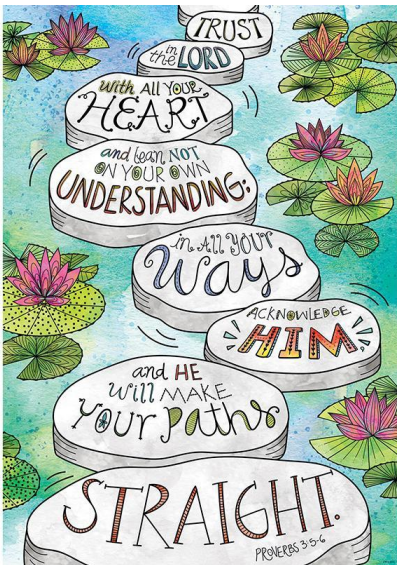 TRUST
in
the LORD
with ALL YOUR
HEART
and lean NOT
ON YOUR OWN
UNDERSTANDING;
in ALL YOUR
Ways
ACKNOWLEDGE
HIM,
and HE
will MAKE
YOUR PATHS
STRAIGHT.
PROVERBS 3:5-6